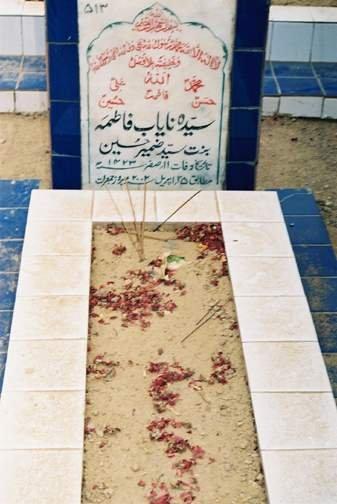 ۵۱۳
بسم اللہ الرحمن الرحیم
لا الہ الا اللہ محمد رسول اللہ علی ولی اللہ وصی رسول اللہ
و خلیفتہ بلا فصل
محمدؐ اللہ علیؑ
حسنؑ فاطمہؑ حسینؑ
سیدہ نایاب فاطمہ
بنت سید ضمیر حسین
تاریخ وفات ۱۱ صفر ۱۴۲۳ھ
مطابق ۲۵ اپریل ۲۰۰۲ء بروز جمعرات